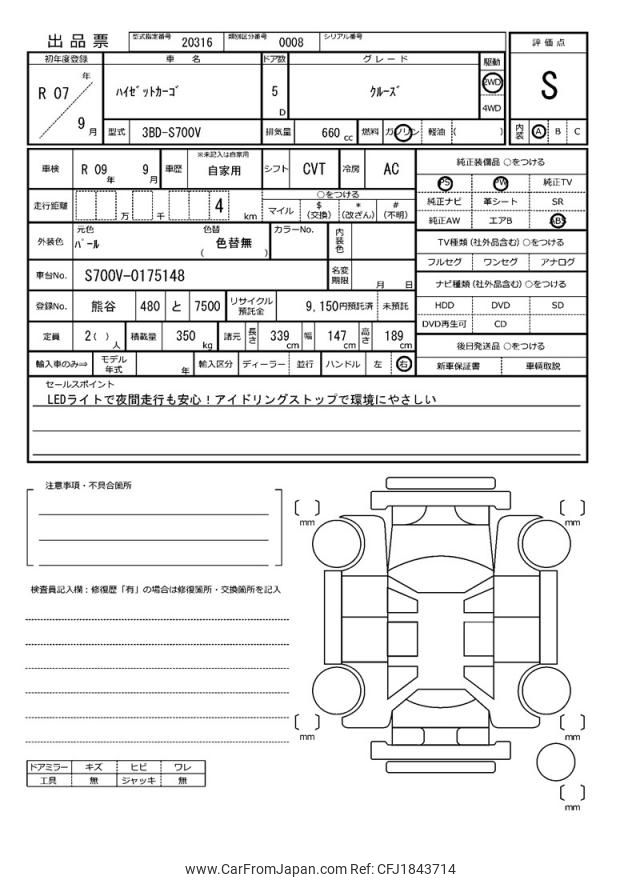 出品票 型式指定番号 20316 類別区分番号 0008 シリアル番号
評価点
S
内装 A B C
初年度登録 車名 ドア数 グレード 駆動
R 07 年 9 月 ﾊｲｾﾞｯﾄｶｰｺﾞ 5 D ｸﾙｰｽﾞ 2WD 4WD
型式 3BD-S700V 排気量 660 cc 燃料 ガソリン 軽油 ( )
車検 R 09 年 9 月 車歴 ※未記入は自家用 自家用 シフト CVT 冷房 AC
走行距離 万 千 4 km ○をつける
マイル $(交換) *(改ざん) #(不明)
外装色 元色 ﾊﾟｰﾙ 色替 色替無 ( ) カラーNo. 内装色
車台No. S700V-0175148 名変期限 月 日
登録No. 熊谷 480 と 7500 リサイクル預託金 9,150円預託済 未預託
定員 2( )人 積載量 350 kg 諸元 長さ 339 cm 幅 147 cm 高さ 189 cm
輸入車のみ⇒ モデル年式 年 輸入区分 ディーラー 並行 ハンドル 左 右
純正装備品 ○をつける
PS PW 純正TV
純正ナビ 革シート SR
純正AW エアB ABS
TV種類 (社外品含む) ○をつける
フルセグ ワンセグ アナログ
ナビ種類 (社外品含む) ○をつける
HDD DVD SD
DVD再生可 CD
後日発送品 ○をつける
新車保証書 車輌取説
セールスポイント
LEDライトで夜間走行も安心！アイドリングストップで環境にやさしい
注意事項・不具合箇所
検査員記入欄：修復歴「有」の場合は修復箇所・交換箇所を記入
[ ] mm
[ ] mm
[ ] mm
[ ] mm
[ ] mm
ドアミラー キズ ヒビ ワレ
工具 無 ジャッキ 無
www.CarFromJapan.com Ref: CFJ1843714